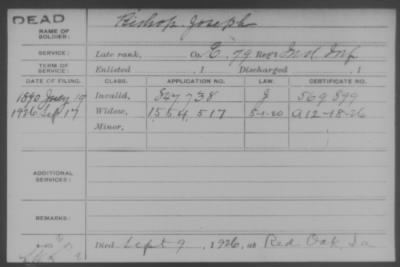 DEAD
NAME OF SOLDIER: Bishop Joseph
SERVICE: Late rank, Co. E, 79 Reg't Ind. Inf.
TERM OF SERVICE: Enlisted , 1 Discharged , 1
DATE OF FILING. CLASS. APPLICATION NO. LAW. CERTIFICATE NO.
1890 July 19 Invalid, 847,738 J 569,899
1926 Sep 17 Widow, 1554,517 5-1-20 A12-18-26
Minor,
ADDITIONAL SERVICES:
REMARKS:
Died Sept 9, 1926, at Red Oak, Ia